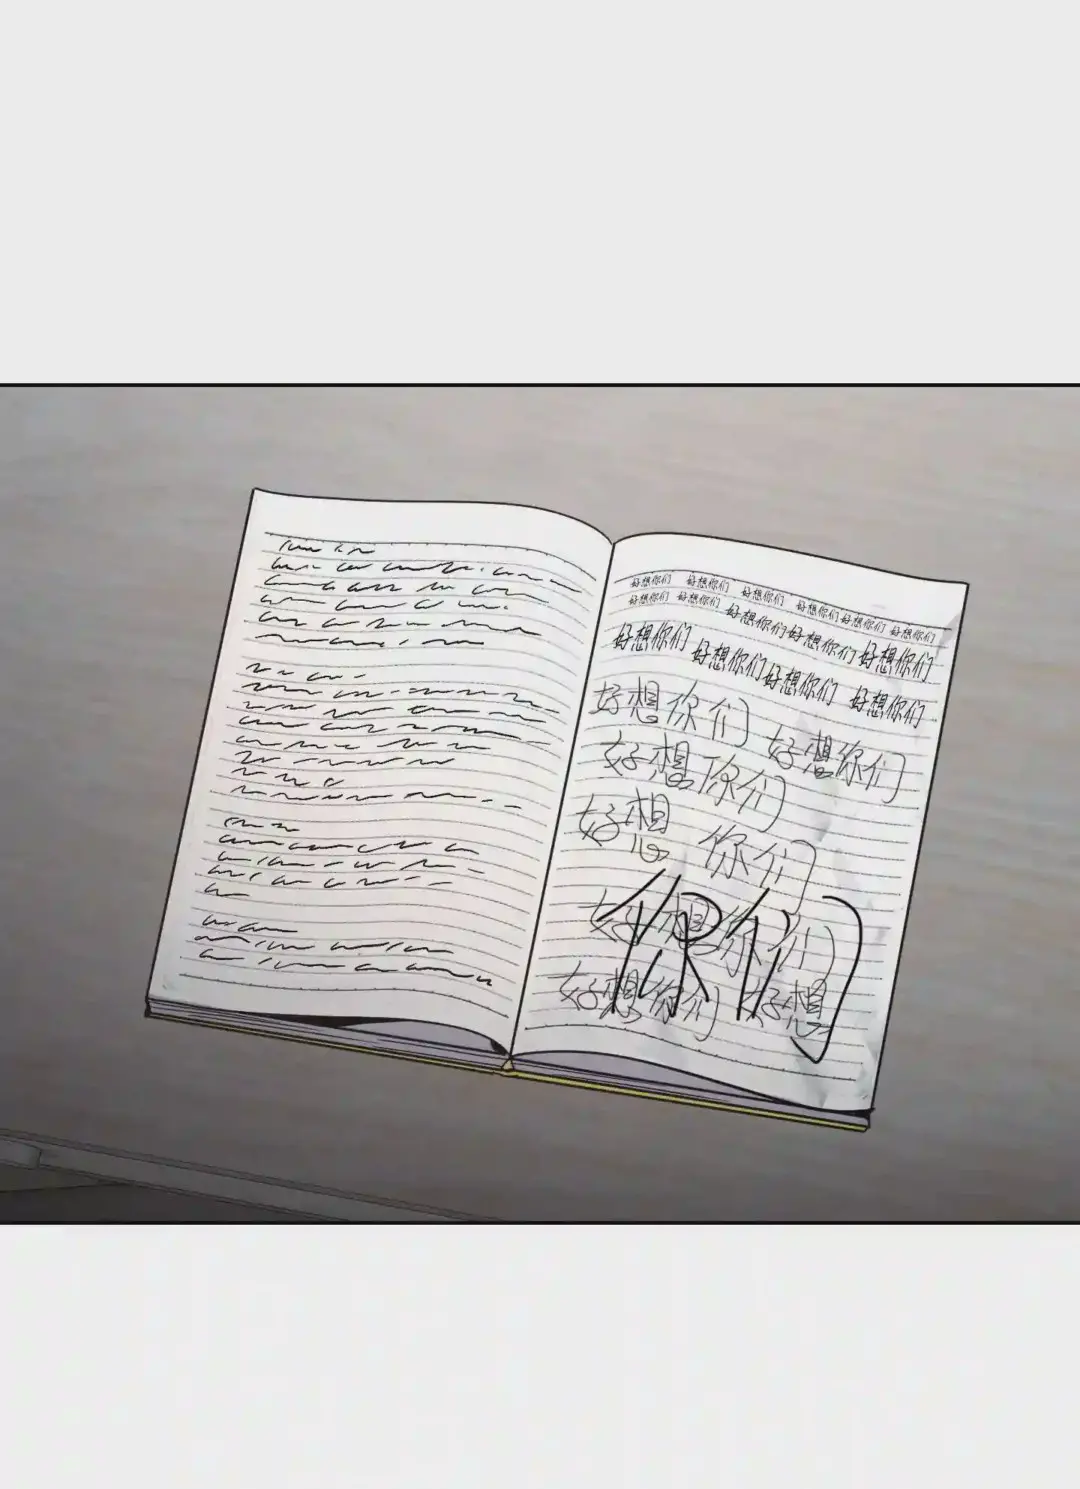 好想你们 好想你们 好想你们 好想你们 好想你们 好想你们
好想你们 好想你们 好想你们 好想你们 好想你们
好想你们 好想你们 好想你们 好想你们
好想你们 好想你们
好想你们
好想 你们
好想你们
你们
好想你们 好想